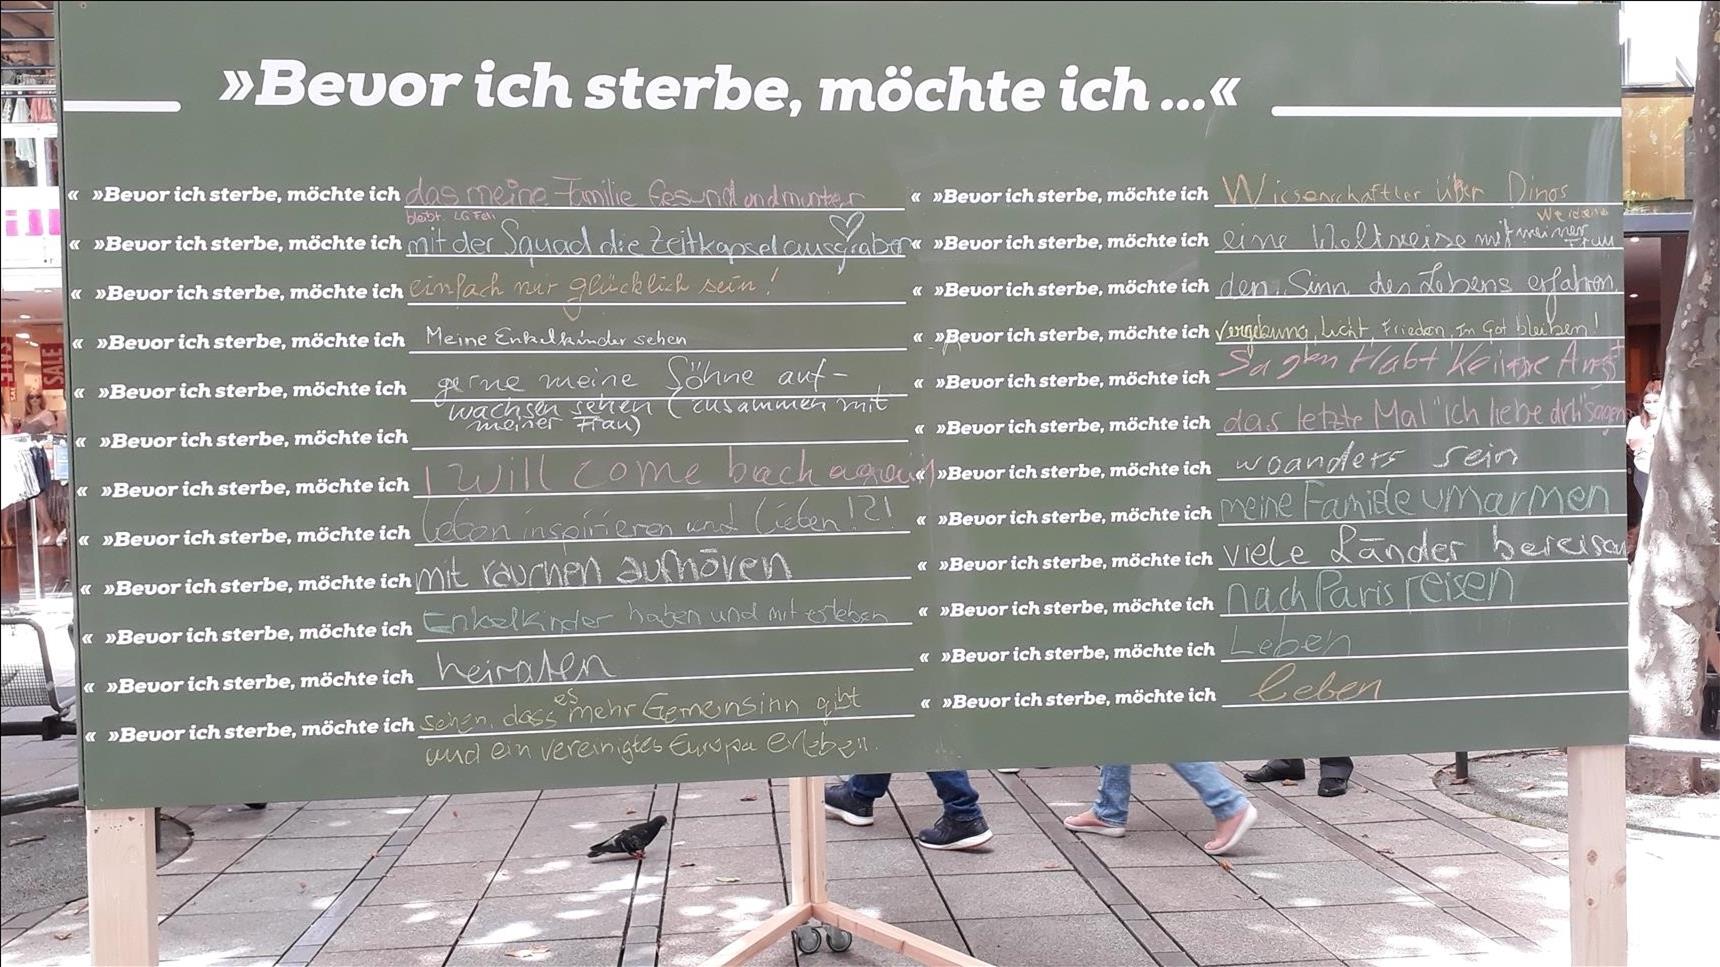 »Bevor ich sterbe, möchte ich ...«
« »Bevor ich sterbe, möchte ich das meine Familie Gesund und munter
bleibt. LG Feli
« »Bevor ich sterbe, möchte ich mit der Squad die Zeitkapsel ausgraben
« »Bevor ich sterbe, möchte ich einfach nur glücklich sein!
« »Bevor ich sterbe, möchte ich Meine Enkelkinder sehen
« »Bevor ich sterbe, möchte ich gerne meine Söhne auf-
wachsen sehen (zusammen mit
meiner Frau)
« »Bevor ich sterbe, möchte ich
« »Bevor ich sterbe, möchte ich I will come back again
« »Bevor ich sterbe, möchte ich leben inspirieren und lieben!?!
« »Bevor ich sterbe, möchte ich mit rauchen aufhören
« »Bevor ich sterbe, möchte ich Enkelkinder haben und mit erleben
« »Bevor ich sterbe, möchte ich heiraten
« »Bevor ich sterbe, möchte ich sehen, dass es mehr Gemeinsinn gibt
und ein vereinigtes Europa erleben.
« »Bevor ich sterbe, möchte ich Wissenschaftler über Dinos
werden
« »Bevor ich sterbe, möchte ich eine Weltreise mit meiner Frau
« »Bevor ich sterbe, möchte ich den Sinn des Lebens erfahren
« »Bevor ich sterbe, möchte ich Vergebung, Licht, Frieden, in Got bleiben!
« »Bevor ich sterbe, möchte ich Sagen Habt Keine Angst
« »Bevor ich sterbe, möchte ich das letzte Mal "ich liebe dich" sagen
« »Bevor ich sterbe, möchte ich woanders sein
« »Bevor ich sterbe, möchte ich meine Familie umarmen
« »Bevor ich sterbe, möchte ich viele Länder bereisen
« »Bevor ich sterbe, möchte ich nach Paris reisen
« »Bevor ich sterbe, möchte ich Leben
« »Bevor ich sterbe, möchte ich leben
SALE